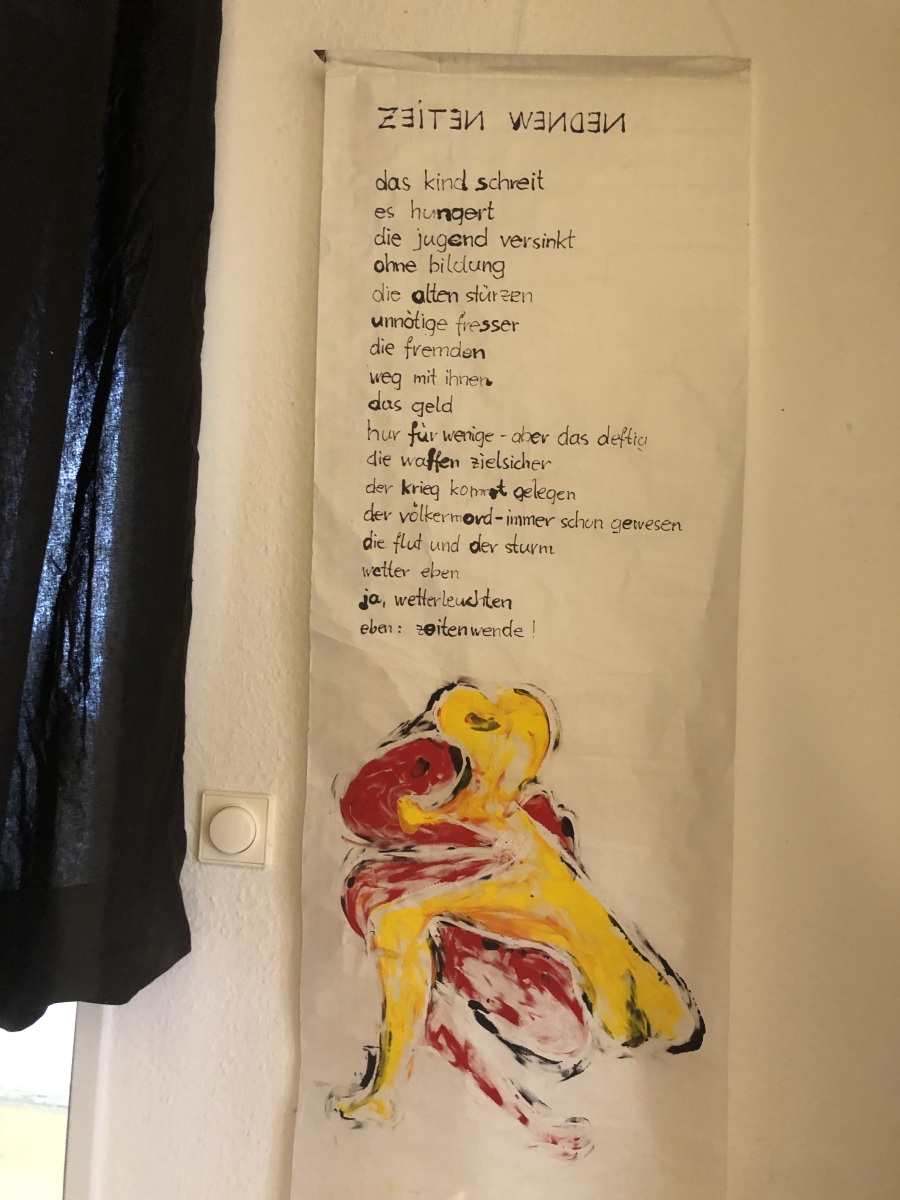 ZEiTEN WENDEN
das kind schreit
es hungert
die jugend versinkt
ohne bildung
die alten stürzen
unnötige fresser
die fremden
weg mit ihnen
das geld
nur für wenige - aber das deftig
die waffen zielsicher
der krieg kommt gelegen
der völkermord - immer schon gewesen
die flut und der sturm
wetter eben
ja, wetterleuchten
eben: zeitenwende !